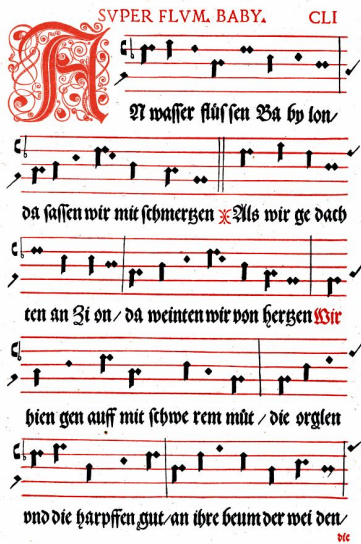 SVPER FLVM. BABY. CLI
AN wasser flüssen Ba by lon/
da sassen wir mit schmertzen Als wir ge dach
ten an Zi on/ da weinten wir von hertzen Wir
hien gen auff mit schwe rem mût / die orglen
vnd die harpffen gut/an ihre beum der wei den/
die